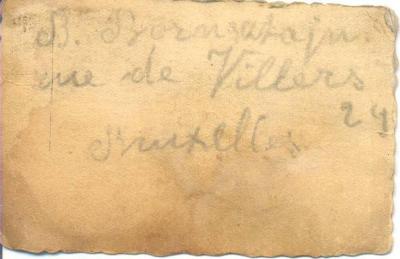 B. Bornsztajn.
rue de Villers
24
Bruxelles